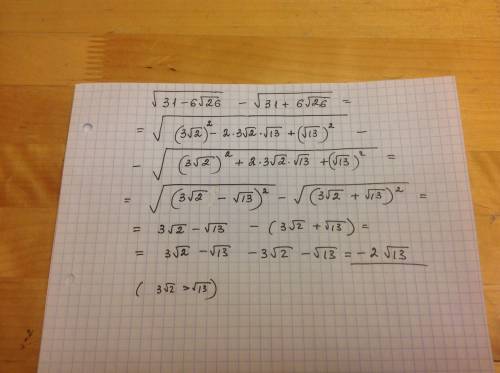 √(31 − 6√26) − √(31 + 6√26) =
= √((3√2)² − 2·3√2·√13 + (√13)²) −
− √((3√2)² + 2·3√2·√13 + (√13)²) =
= √((3√2 − √13)²) − √((3√2 + √13)²) =
= 3√2 − √13 − (3√2 + √13) =
= 3√2 − √13 − 3√2 − √13 = −2√13
(3√2 > √13)